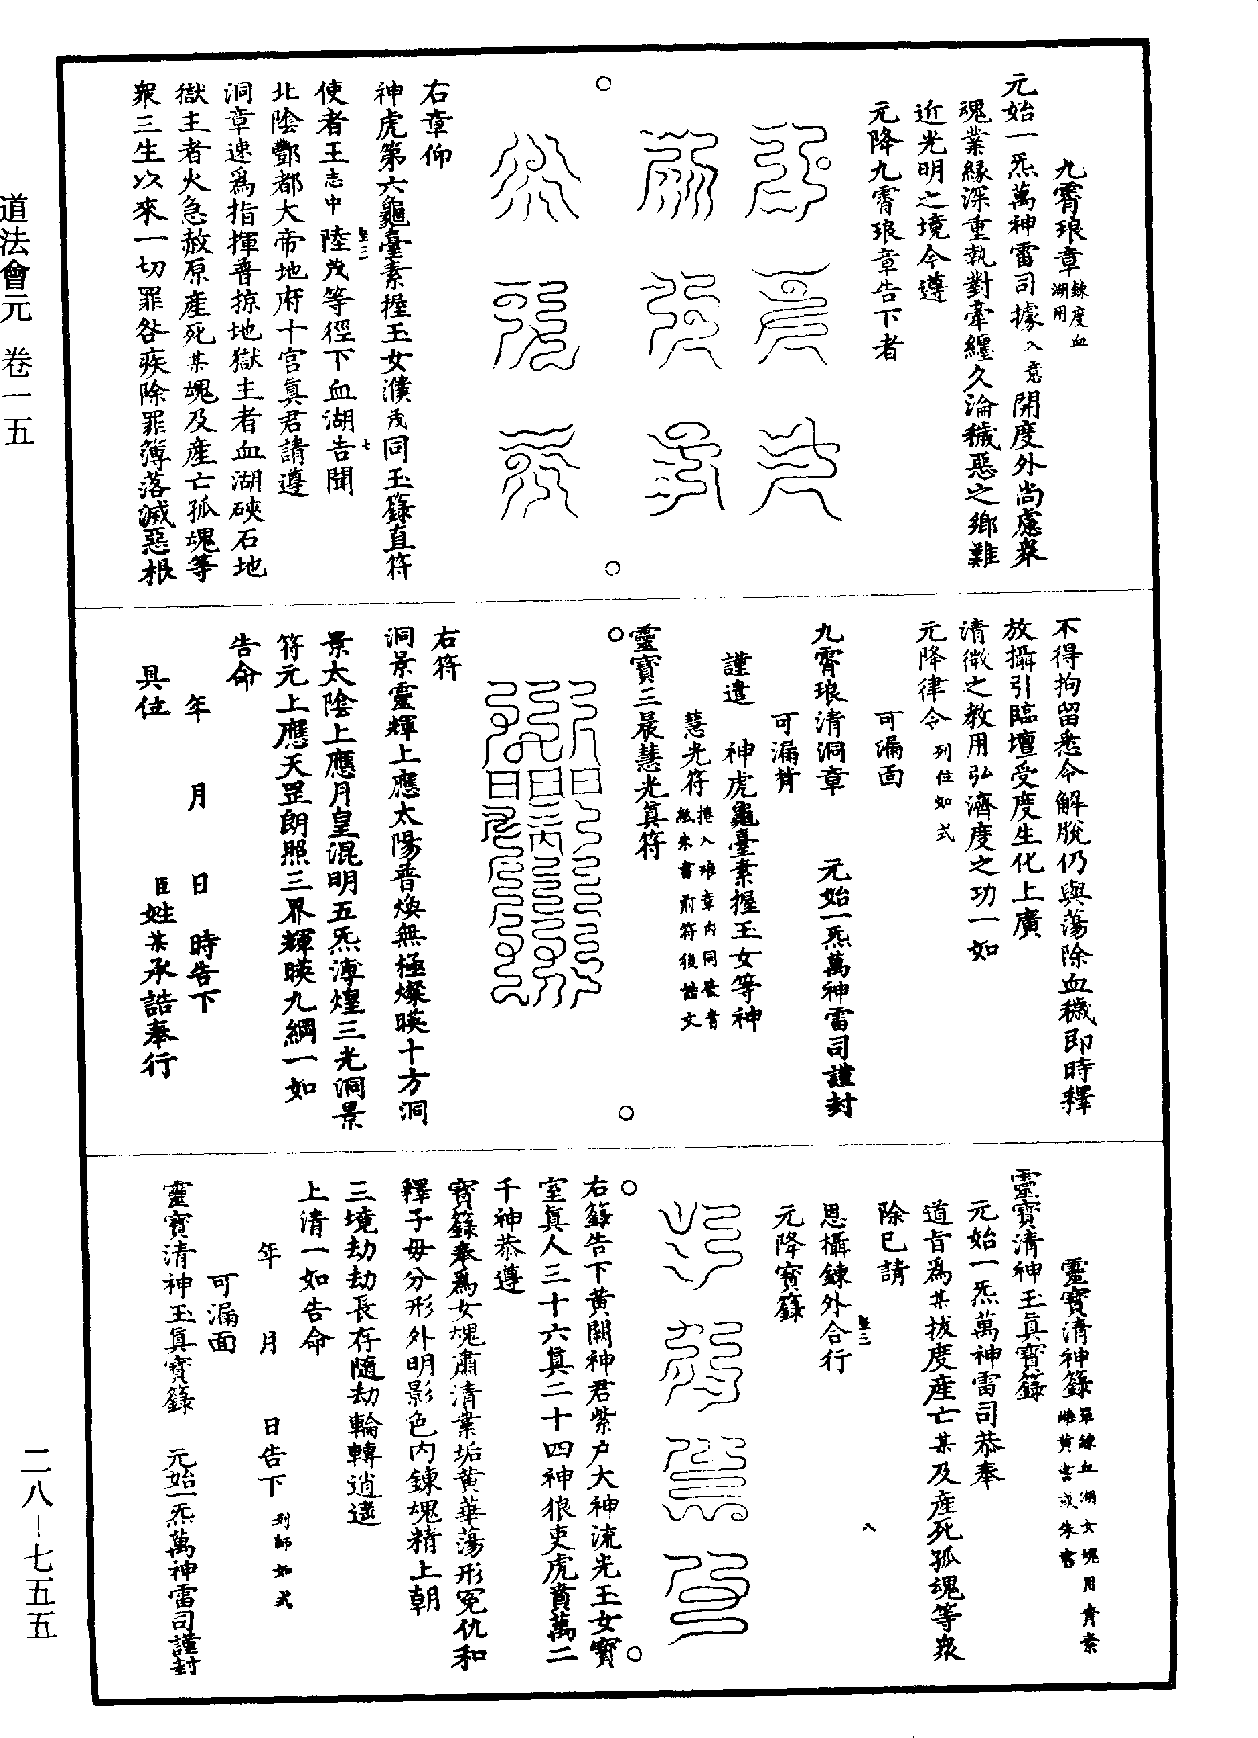 九霄琅章鍊度血湖用
元始一炁萬神雷司據入意開度外尚慮眾
魂業緣深重執對牽纏久淪穢惡之鄉難
近光明之境今遵
元降九霄琅章告下者
右章仰
神虎第六龜臺素握玉女濮茂同玉籙直符
使者王志中陸茂等徑下血湖告聞
北陰酆都大帝地府十宮真君請遵
洞章速為指揮普掠地獄主者血湖硤石地
獄主者火急赦原產死某魂及產亡孤魂等
眾三生以來一切罪咎疾除罪簿落滅惡根
不得拘留悉令解脫仍與蕩除血穢即時釋
放攝引臨壇受度生化上廣
清微之教用弘濟度之功一如
元降律令列位如式
可漏面
九霄琅清洞章　元始一炁萬神雷司謹封
可漏背
謹遣　神虎龜臺素握玉女等神
慧光符捲入琅章內同發青紙朱書前符後誥文
靈寶三晨慧光真符
右符
洞景靈輝上應太陽普煥無極燦暎十方洞
景太陰上應月皇混明五炁溥煌三光洞景
符元上應天罡朗照三界輝暎九綱一如
告命
年　月　日　時告下
具位　臣姓某承誥奉行
靈寶清神籙單鍊血湖女魂用青素雌黃書或朱書
靈寶清神玉真寶籙
元始一炁萬神雷司恭奉
道旨為某拔度產亡某及產死孤魂等眾
除已請
恩攝鍊外合行
元降寶籙
右籙告下黃闕神君紫戶大神流光玉女寶
室真人三十六真二十四神狼吏虎賁萬二
千神恭遵
寶籙奉為女魂肅清業垢黃華蕩形冤仇和
釋子母分形外明影色內鍊魂精上朝
三境劫劫長存隨劫輪轉逍遙
上清一如告命
年　月　日告下列師如式
可漏面
靈寶清神玉真寶籙　元始一炁萬神雷司謹封
道法會元　卷一五
二八－七五五